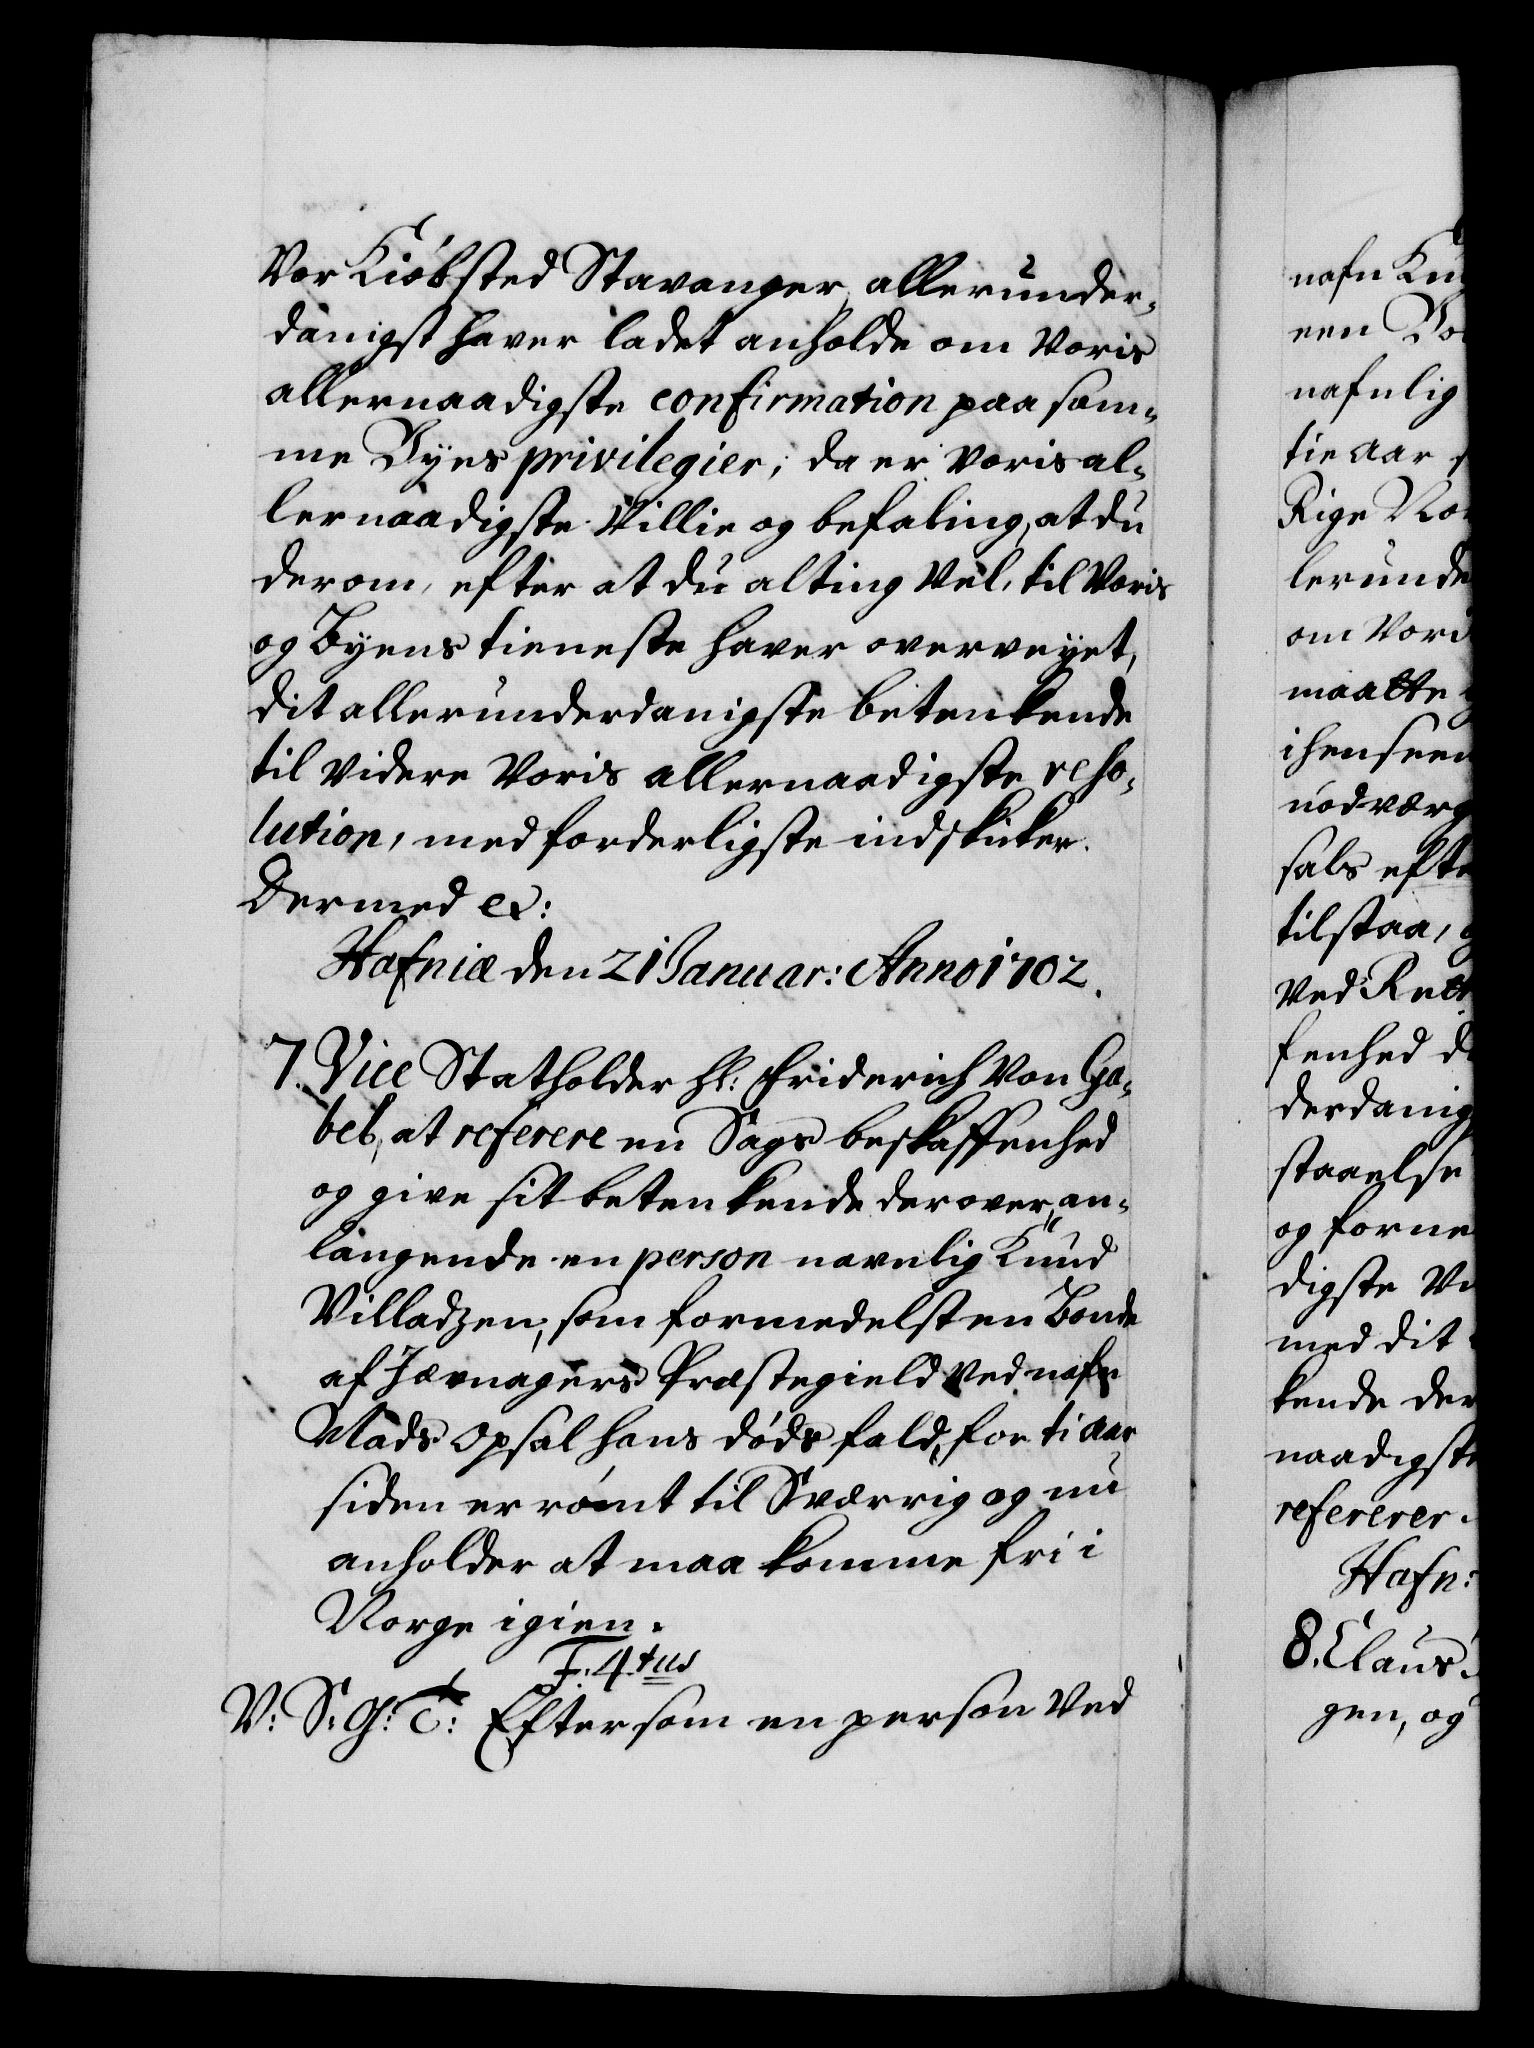 Vor Kiøbsted Stavanger, allerunder-
danigst haver ladet anholde om Voris
allernaadigste confirmation paa sam-
me Byes privilegier; da er Voris al-
lernaadigste Villie og befaling, at du
derom, efter at du alting vel, til Voris
og Byens tieneste haver overveyet,
dit allerunderdanigste betenkende
til videre Voris allernaadigste reso-
lution, med forderligste indskicker.
Dermed &c:
Hafniæ den 21 Januar: Anno 1702.
7. Vice Statholder Hr: Friderich Von Ga-
bel, at referere en Sags beskaffenhed
og give sit betenkende derover, an-
langende en person navnlig Knud
Villadzen, som formedelst en Bonde
af Jævnagers Præstegield ved nafn
Mads Opsal hans døds fald, for ti aar
siden er rømt til Sværrig og nu
anholder at maa komme fri i
Norge igien.
F: 4tus
V: S: G: T: Eftersom en person Ved
nafn Knu
een Bo
nafnlig
tie aar
Rige Nor
lerunde
om Vor
maatte
i henseen
nodværg
sals efte
tilstaa,
Ved Rett
fenhed d
derdanig
staaelse
og forne
digste Vi
med dit
kende der
naadigste
refererer.
Hafn:
8. Claus
gen, og